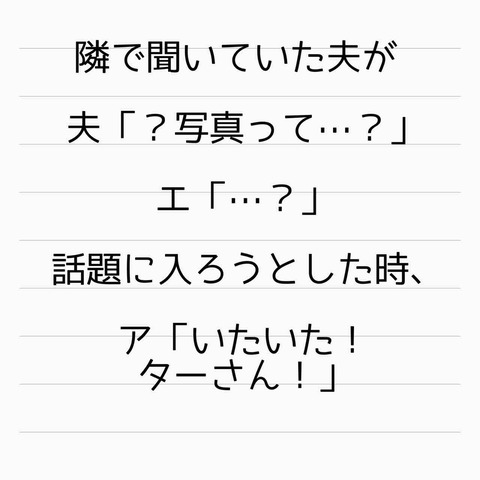 隣で聞いていた夫が
夫「？写真って…？」
エ「…？」
話題に入ろうとした時、
ア「いたいた！
ターさん！」